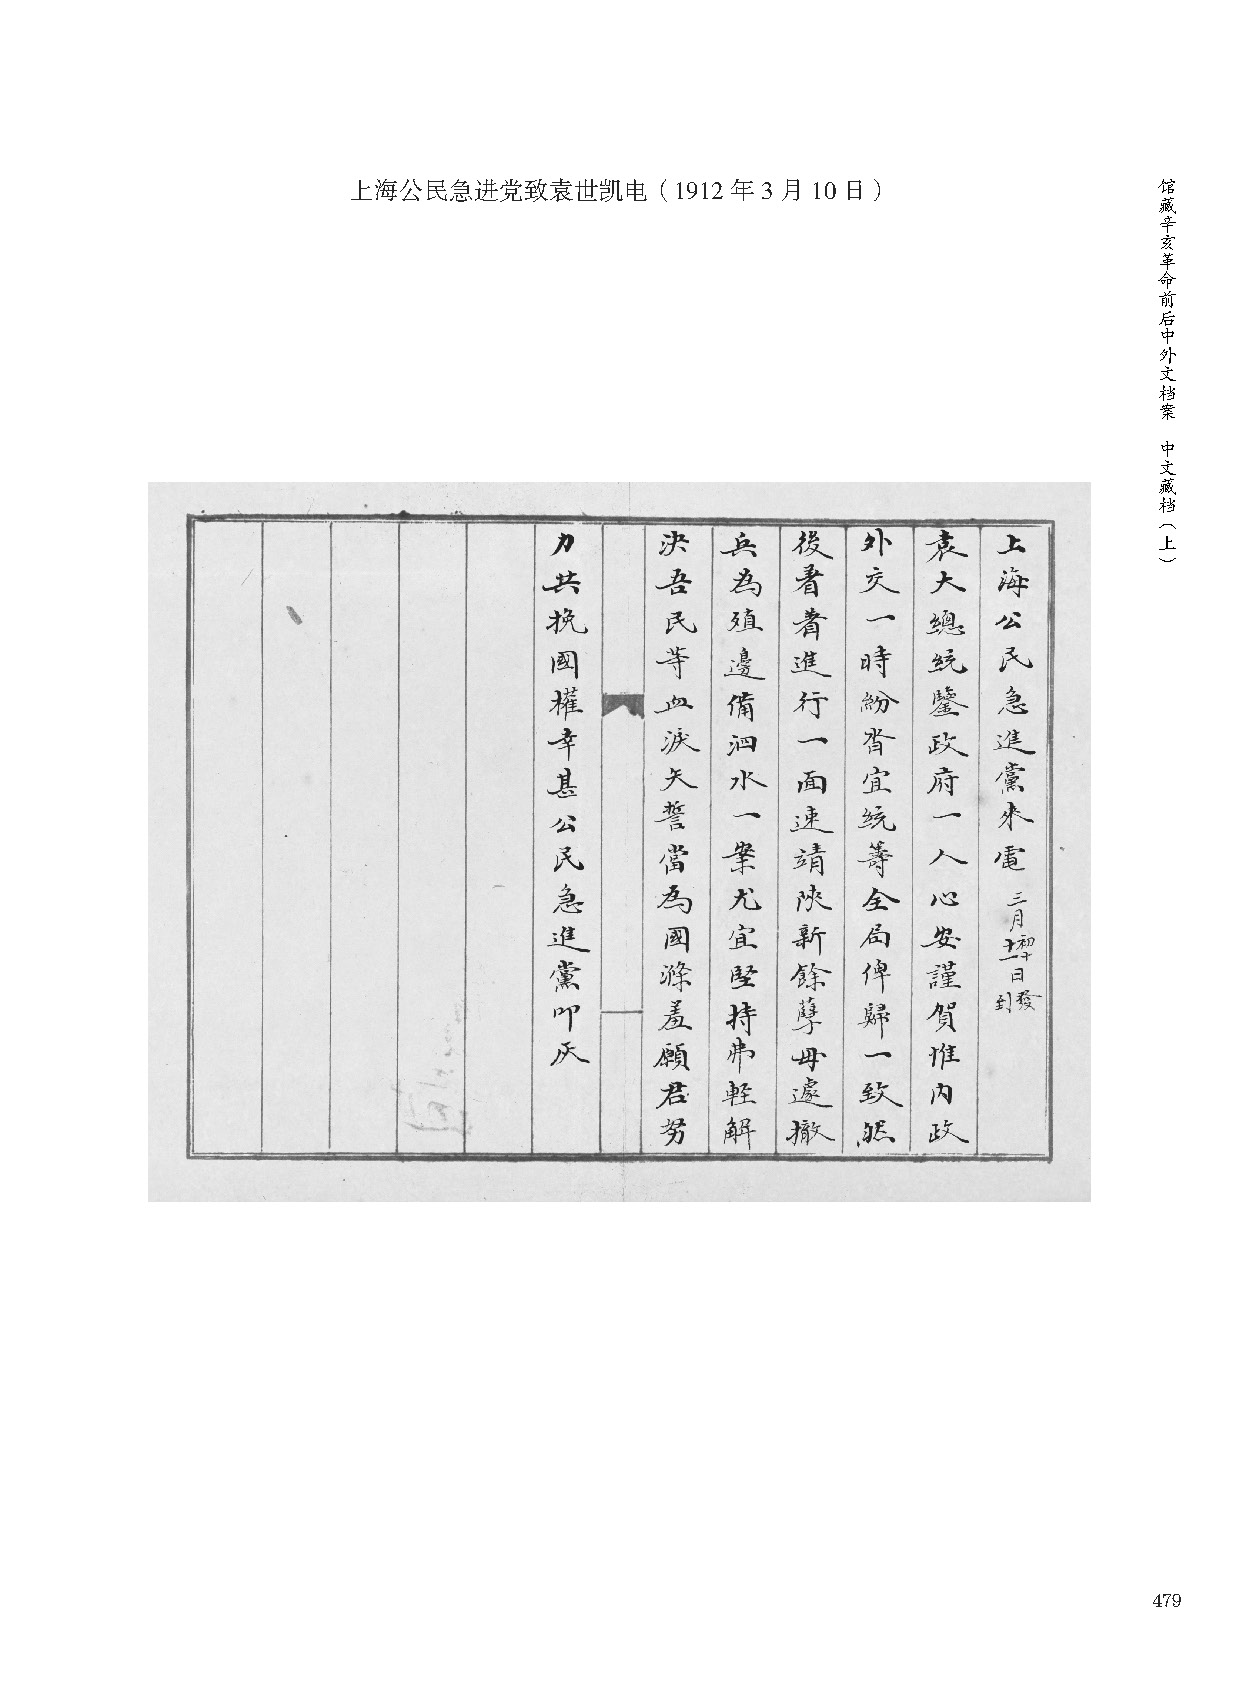 上海公民急进党致袁世凯电（1912年3月10日）
馆藏辛亥革命前后中外文档案　中文藏档（上）
上海公民急進黨來電 三月初十日發 十一日到
袁大總統鑒政府一人心安謹賀惟內政
外交一時紛沓宜統籌全局俾歸一致然
後着着進行一面速靖陝新餘孽毋遽撤
兵為殖邊備泗水一案尤宜堅持弗輕解
決吾民等血淚矢誓當為國滌羞願君努
力共挽國權幸甚公民急進黨叩灰
479